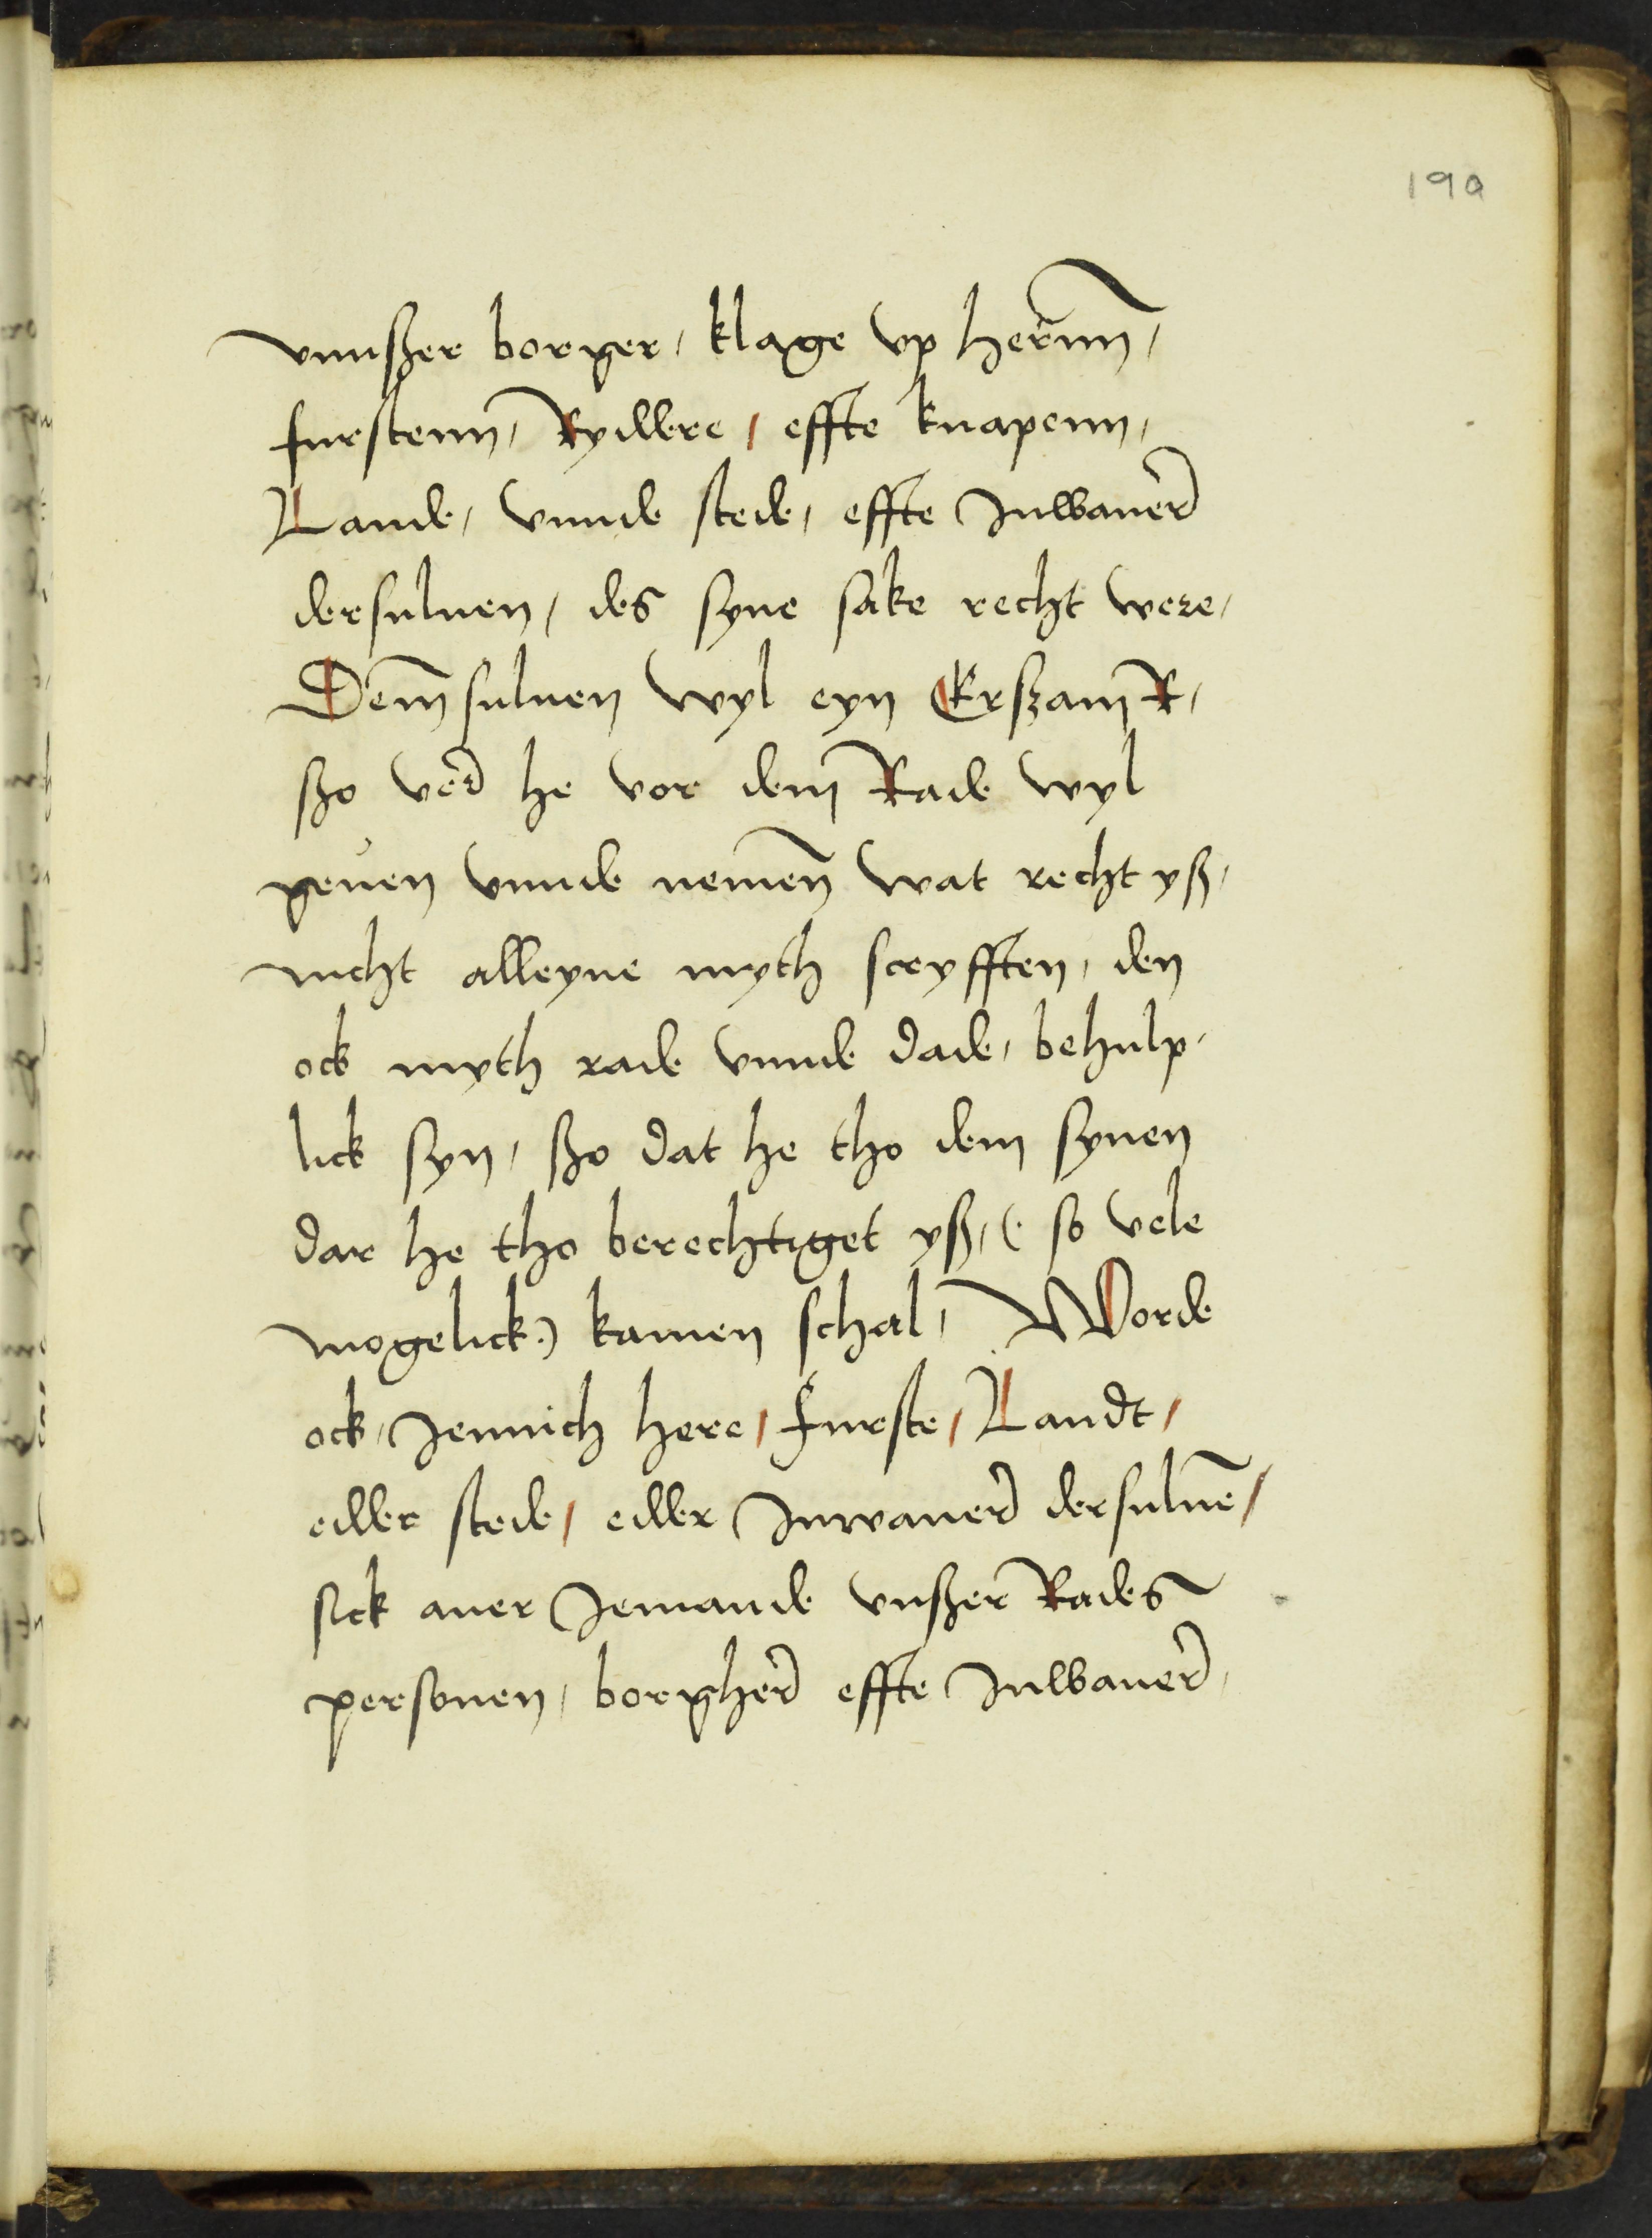 19a
vnnßer borger, klage vp hernn,
furstenn, Ryddere, effte knapenn,
Lande, vnnde stede, effte Inwaner
dersuluen, des syne sake recht were,
Dem suluen wyl eyn Erßam R,
ßo verd he vor dem Rade wyl
geuen vnnde nemen wat recht yß,
nicht alleyne myth scryfften, den
ock myth rade vnnde dade, behulp,
lick syn, ßo dat he tho dem synen
dar he tho berechtiget yß, (: so vele
mogelick:) kamen schal, Worde
ock, Jennich here, furste, Landt,
edder stede, edder Inwaner dersuluē,
sick auer Jemande vnßer Rades
personen, borgher effte Inwaner,